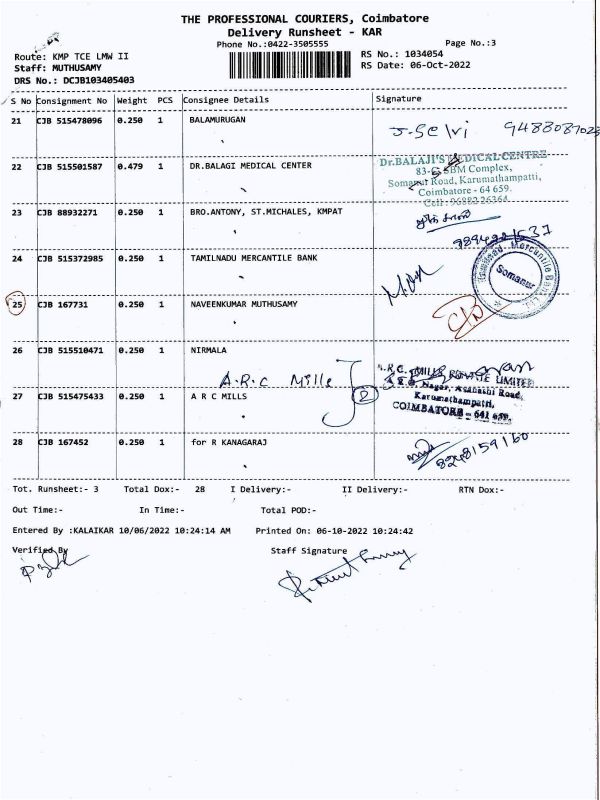 THE PROFESSIONAL COURIERS, Coimbatore
Delivery Runsheet - KAR
Phone No.:0422-3505555
Page No.:3
Route: KMP TCE LMW II
RS No.: 1034054
Staff: MUTHUSAMY
RS Date: 06-Oct-2022
DRS No.: DCJB103405403
S No Consignment No Weight PCS Consignee Details Signature
21 CJB 515478096 0.250 1 BALAMURUGAN
J-Selvi 9488087023
22 CJB 515501587 0.479 1 DR.BALAGI MEDICAL CENTER
Dr.BALAJI'S MEDICAL CENTRE
83-C, SBM Complex,
Somanur Road, Karumathampatti,
Coimbatore - 64 659.
Cell: 96882 26364
23 CJB 88932271 0.250 1 BRO.ANTONY, ST.MICHALES, KMPAT
24 CJB 515372985 0.250 1 TAMILNADU MERCANTILE BANK
Tamilnad Mercantile Bank Ltd.
Somanur
25 CJB 167731 0.250 1 NAVEENKUMAR MUTHUSAMY
26 CJB 515510471 0.250 1 NIRMALA
A.R.C Mills
2
27 CJB 515475433 0.250 1 A R C MILLS
A.R.C. MILLS PRIVATE LIMITED
Nagar, Avanashi Road,
Karumathampatti,
COIMBATORE - 641 659.
28 CJB 167452 0.250 1 for R KANAGARAJ
8248159160
Tot. Runsheet:- 3 Total Dox:- 28 I Delivery:- II Delivery:- RTN Dox:-
Out Time:- In Time:- Total POD:-
Entered By :KALAIKAR 10/06/2022 10:24:14 AM Printed On: 06-10-2022 10:24:42
Verified By Staff Signature